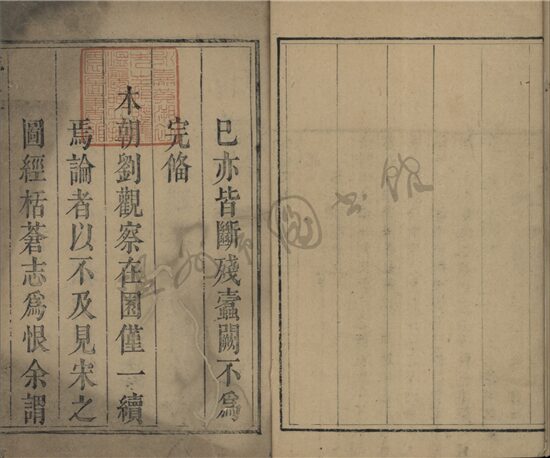 已亦皆斷殘蠹闕不為
完俻
本朝劉觀察在園僅一續
焉論者以不及見宋之
圖經栝蒼志為恨余謂